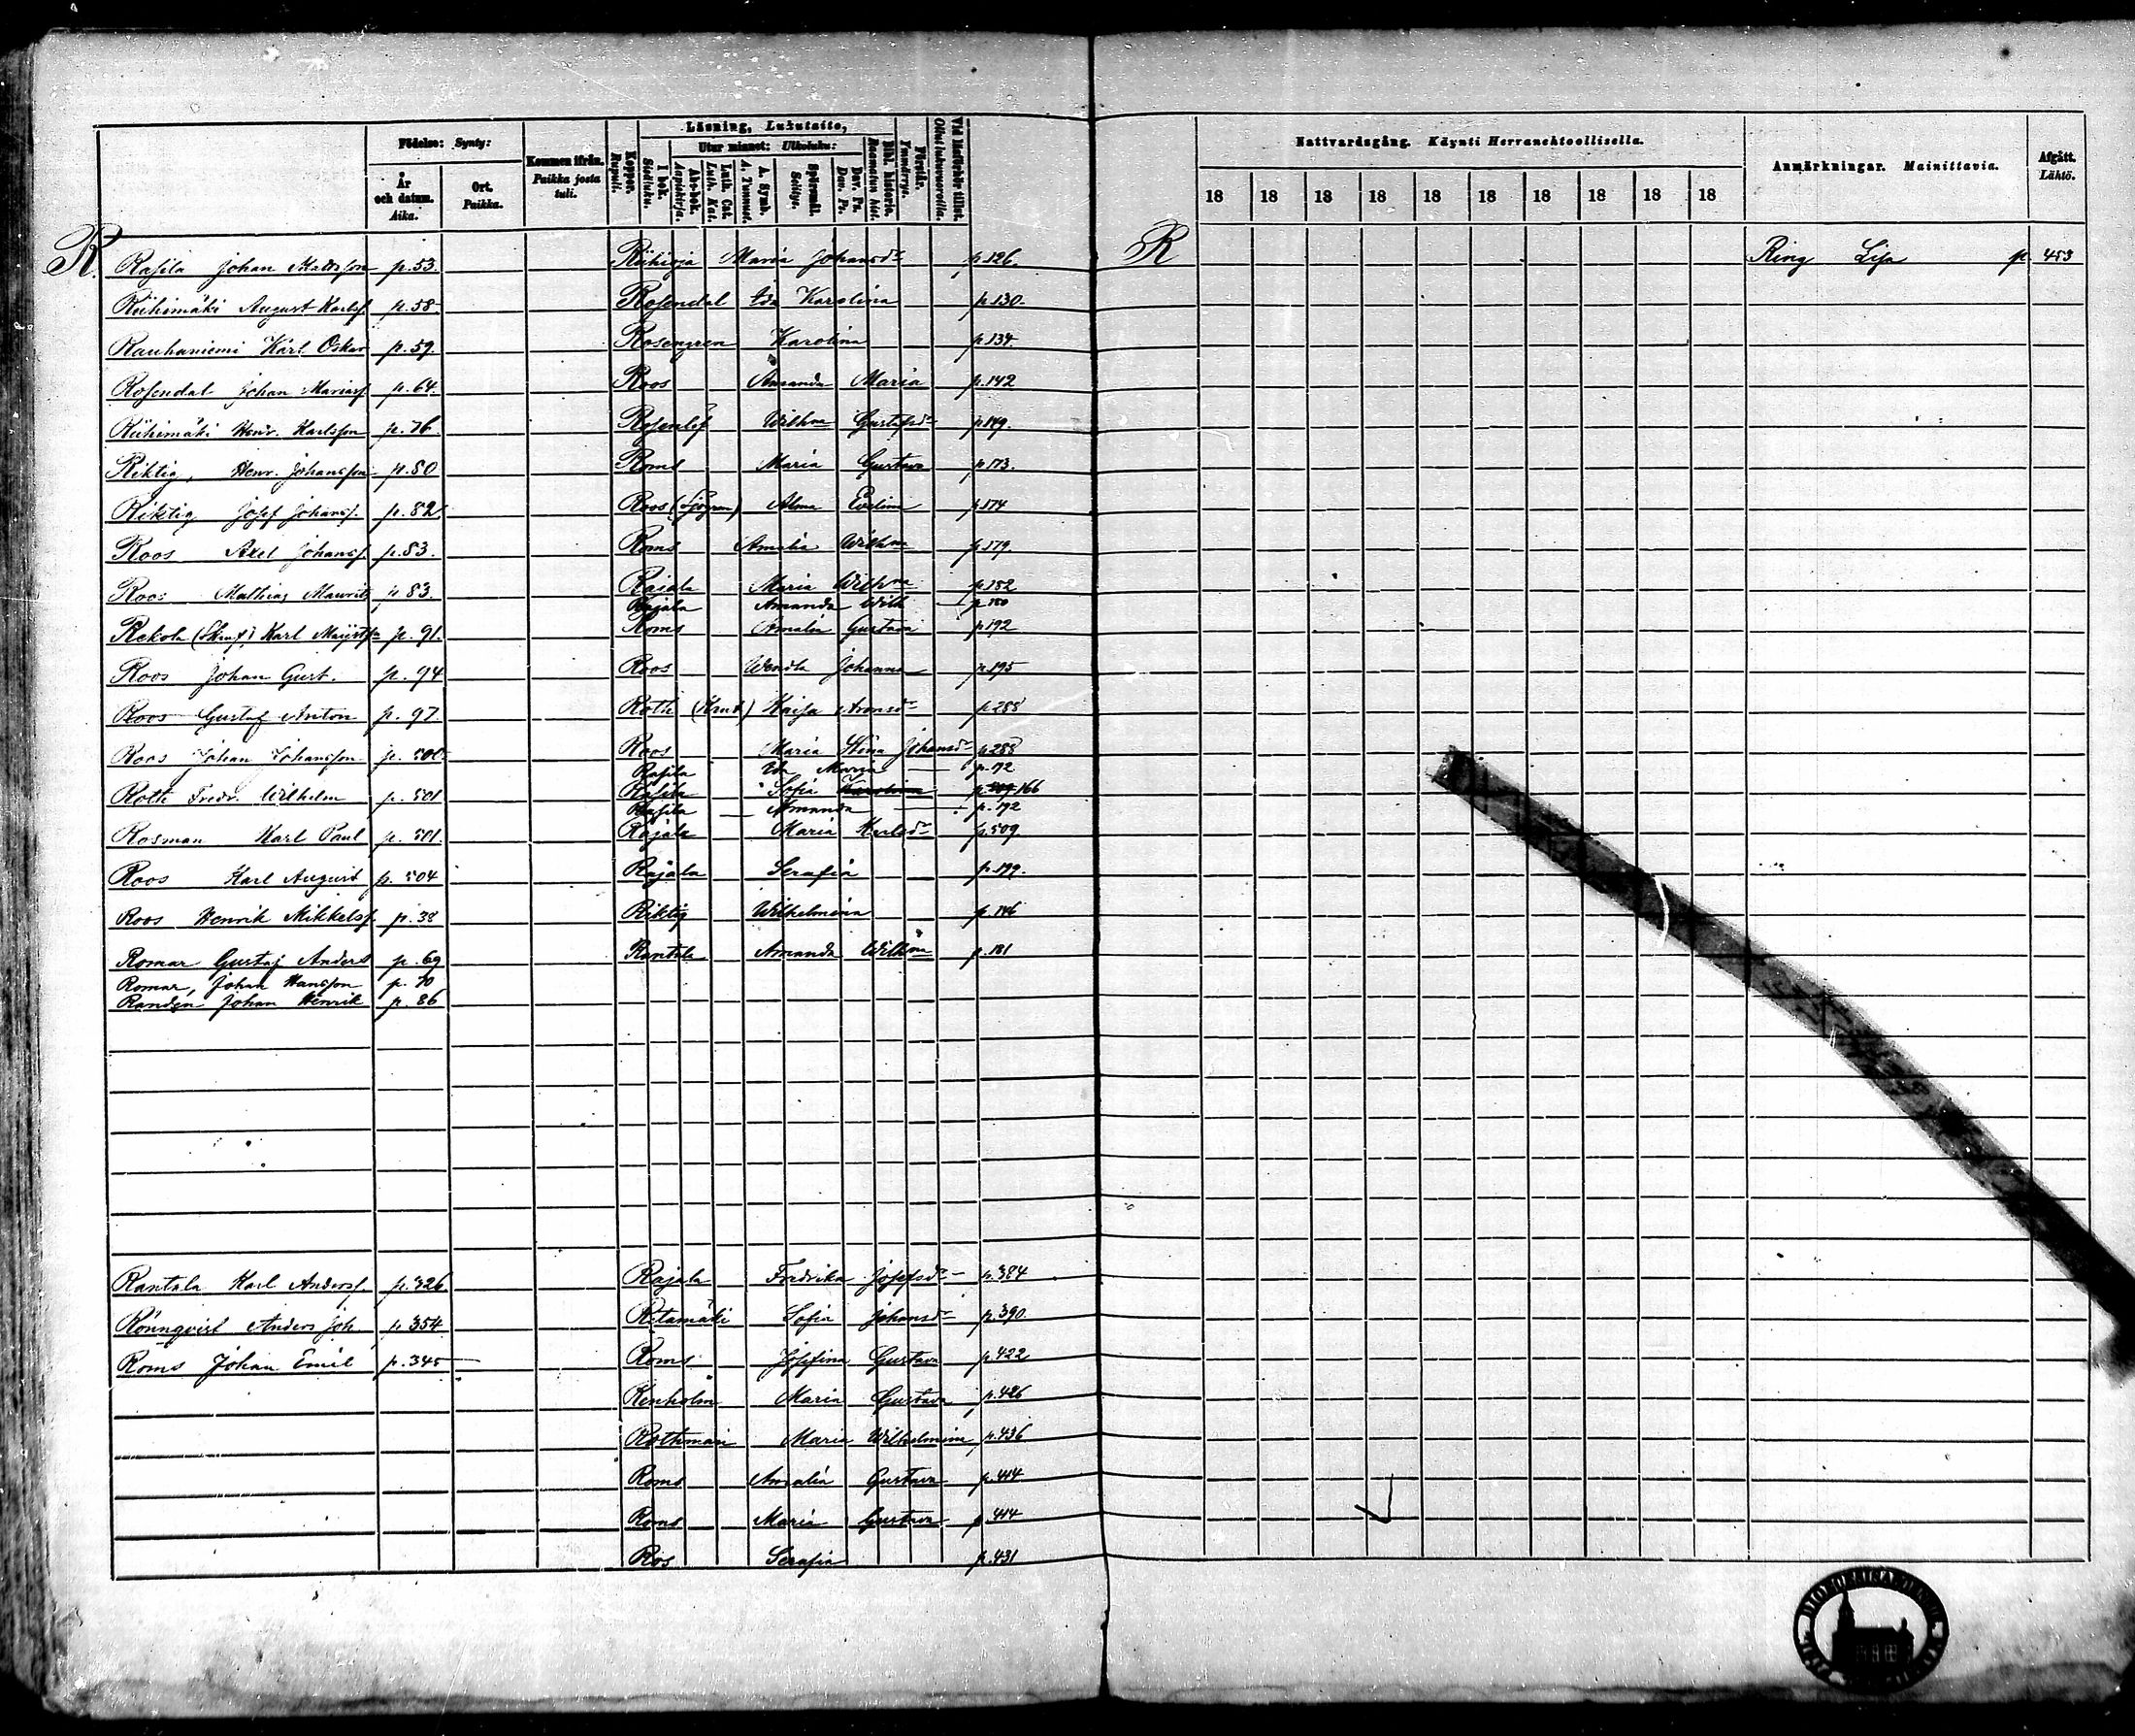 Födelse: Synty:
År och datum. Aika.
Ort. Paikka.
Kommen ifrån. Paikka josta tuli.
Koppor. Rupuli.
Läsning, Lukutaito,
Utur minnet: Ulkoluku:
I bok. Sisäluku.
Abc-bok. Aapiskirja.
Luth. Cat. Luth. Kat.
A. Symb. A. Tunnust.
Spörsmål. Selitys.
Dav. Ps. Dav. Ps.
Bibl. historia. Raamatun hist.
Förstår. Ymmärrys.
Vid läsförhör tillst. Ollut lukuvuoroilla.
Nattvardsgång. Käynti Herranehtoollisella.
18 18 18 18 18 18 18 18 18 18
Anmärkningar. Mainittavia.
Afgått. Lähtö.
R.
Rasila Johan Mattsson p. 53.
Riihimäki August Karlsf. p. 58.
Rauhaniemi Karl Oskar p. 59.
Rosendal Johan Mariasf. p. 64.
Riihimäki Henr. Karlsson p. 76.
Riktig, Henr. Johansson p. 80
Riktig Josef Johansf. p. 82
Roos Axel Johansf. p. 83.
Roos Mathias Maurits p. 83.
Rekola Karl p. 91.
Roos Johan Gust. p. 94
Roos Gustaf Anton p. 97.
Roos Johan Johansson p. 500
Roth Fredr. Wilhelm p. 501
Rosman Karl Paul p. 501.
Roos Karl August p. 504
Roos Henrik Mikkelsf. p. 38
Romar Gustaf Anders p. 69
Romar, Johan Hansson p. 70
Randén Johan Henrik p. 86
Rantala Karl Andersf. p. 326
Rönnqvist Anders Joh. p. 354
Roms Johan Emil p. 345
Riihioja Maria Johansdr p. 126.
Rosendal Ida Karolina p. 130.
Rosengren Karolina p. 134.
Roos Amanda Maria p. 142
Rosenlöf Wilhma Gustafsdr p. 149.
Roms Maria Gustava p. 173.
Roos (Sjögren) Alma Evelina p. 174
Roms Amalia Wilhma p. 179.
Rajala Maria Wilhma p. 182
Rajala Amanda Wilh p. 180
Roms Amalia Gustava p. 192
Roos Wendla Johanna p. 195
Roth Kaisa Aronsdr p. 288
Roos Maria Stina Johansdr p. 288
Rasila Ida Maria p. 72
Rasila Sofia Karolina p. 166
Rasila Amanda p. 192
Rajala Maria Karlsdr p. 509.
Rajala Serafia p. 199.
Riktig Wilhelmina p. 146
Rantala Amanda Wilhma p. 181
Rajala Fredrika Josefsdr p. 384
Retamäki Sofia Johansdr p. 390.
Roms Josefina Gustava p. 422
Renholm Maria Gustava p. 426
Rothman Maria Wilhelmina p. 436
Roms Amalia Gustava p. 414
Roms Maria Gustava p. 414
Ros Serafia p. 431
R
Ring Lisa p. 453